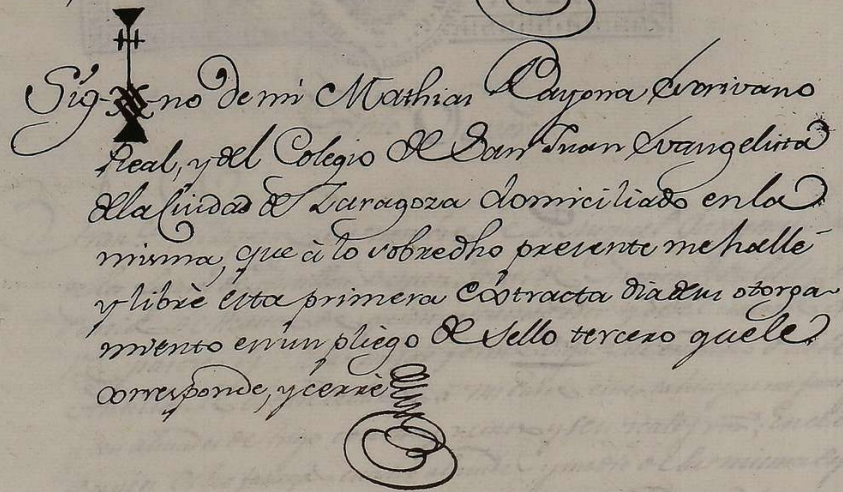 Sig-no de mi Mathias Bayona Escrivano
Real, y del Colegio de San Juan Evangelista
dela Ciudad de Zaragoza domiciliado en la
misma, que à lo sobredho presente me hallè
y librè esta primera extracta dia de su otorga-
miento en un pliego de sello tercero que le
corresponde, y cerrè